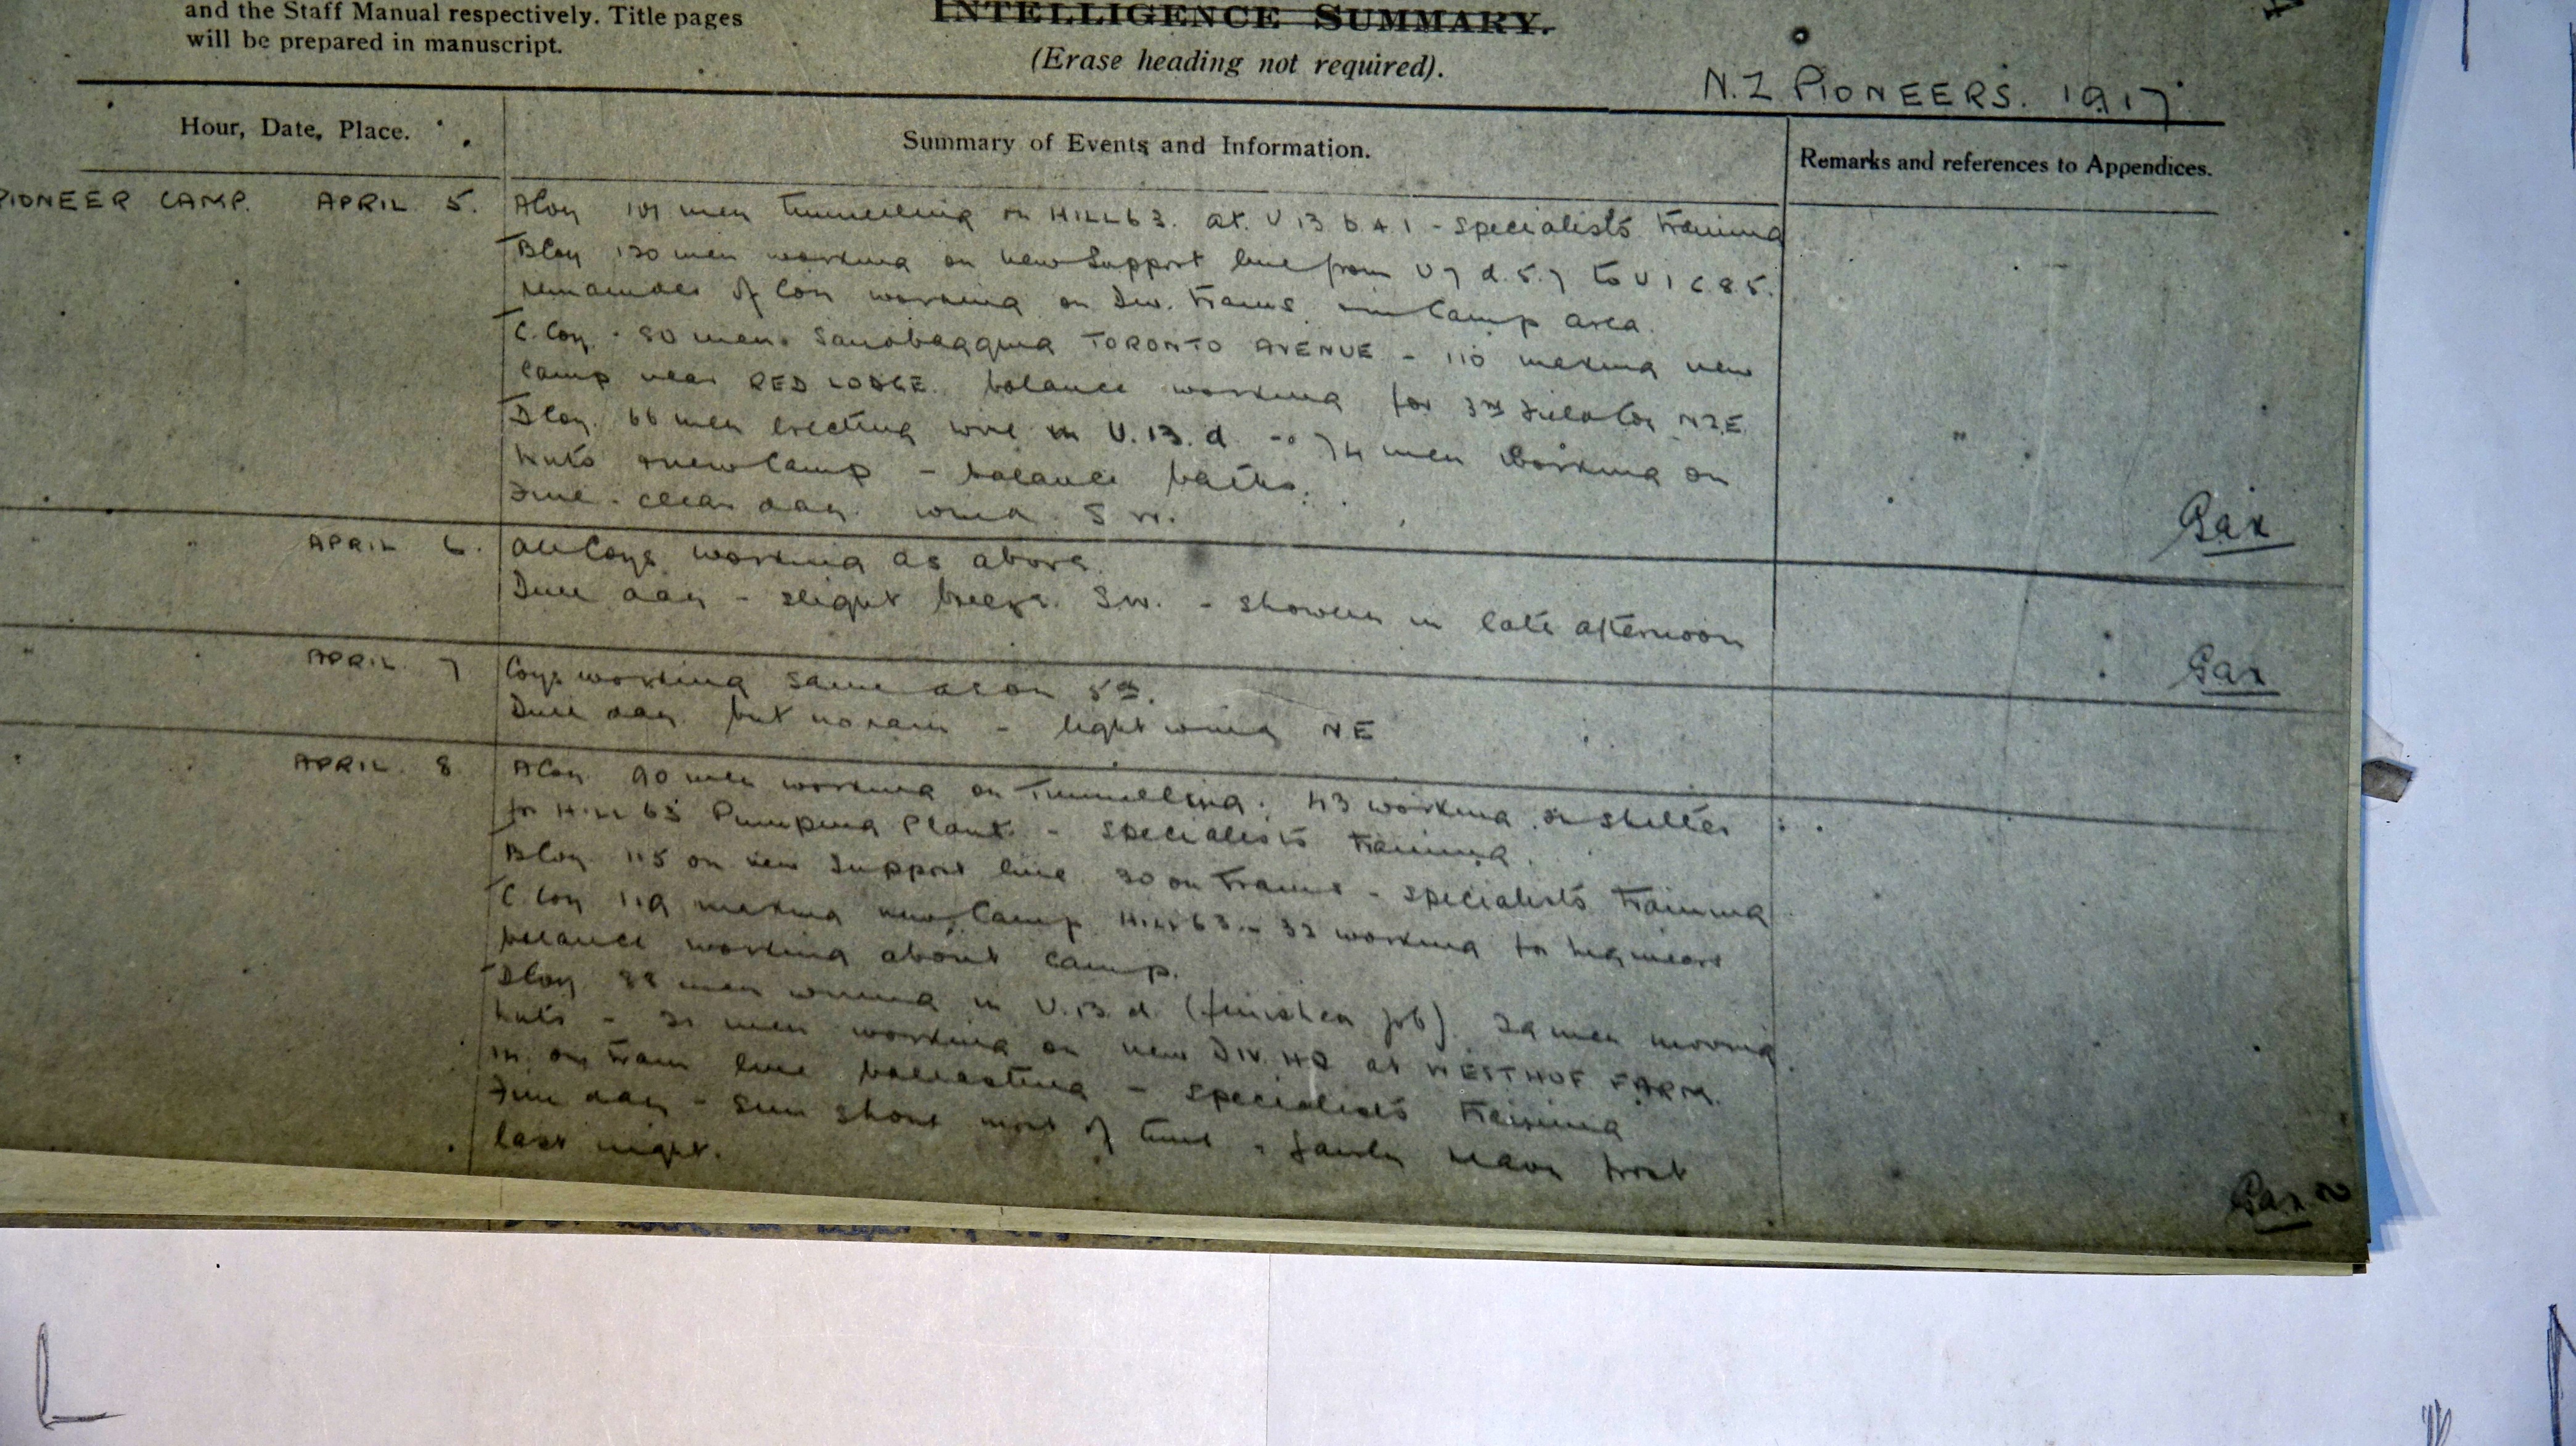 and the Staff Manual respectively. Title pages
will be prepared in manuscript.
INTELLIGENCE SUMMARY.
(Erase heading not required).
N.Z PIONEERS. 1917
Hour, Date, Place.
Summary of Events and Information.
Remarks and references to Appendices.
PIONEER CAMP. APRIL 5.
A Coy 101 men tunnelling on HILL 63. at. U 13 b 4 1 - specialists training
B Coy 130 men working on new Support line from U 7 d. 5.7 to U 1 c 8 5.
remainder of Coy working on Div. trams in Camp area.
C. Coy. 80 men. Sandbagging TORONTO AVENUE - 110 making new
camp near RED LODGE. balance working for 3rd Field Coy NZE
D Coy. 66 men erecting wire in U. 13. d - 74 men working on
huts & new camp - balance baths.
Fine - clear day. wind S W.
APRIL 6.
All Coys working as above.
Dull day - slight breeze. SW. - showers in late afternoon
APRIL 7
Coys working same as on 5th.
Dull day but no rain - light wind NE
APRIL 8
A Coy. 90 men working on Tunnelling. 43 working on shelter
for Hill 63 Pumping Plant - specialists training.
B Coy 115 on new Support line 30 on trams - specialists training
C Coy 119 making new Camp Hill 63 - 32 working for Engineers
balance working about camp.
D Coy 38 men wiring in U. 13. d. (finished job). 29 men moving
huts - 31 men working on new DIV. HQ at WESTHOF FARM.
on tram line ballasting - specialists training
Fine day - sun shone most of time - fairly heavy frost
last night.